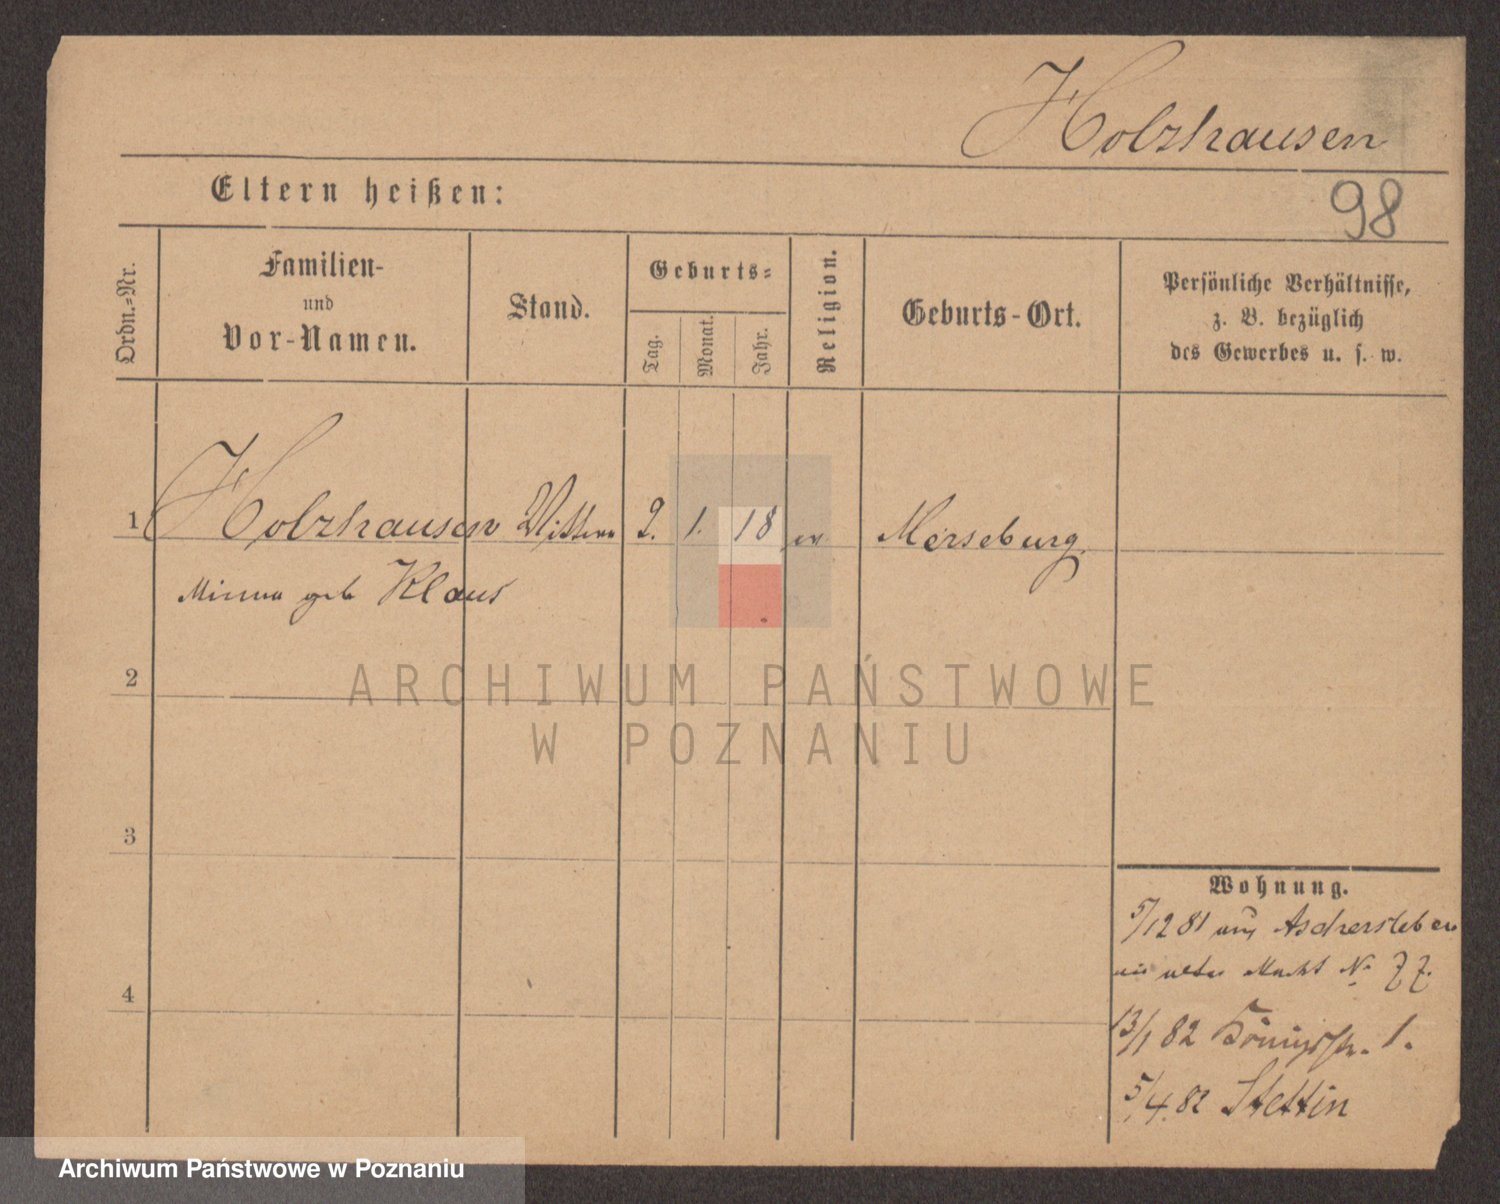 Holzhausen
Eltern heißen:
98
Ordn.=Nr.
Familien-
und
Vor-Namen.
Stand.
Geburts=
Tag.
Monat.
Jahr.
Religion.
Geburts-Ort.
Persönliche Verhältnisse,
z. B. bezüglich
des Gewerbes u. s. w.
1 Holzhausen 2. 1. 18 ev Merseburg
Minna geb Klaus
2
3
4
Wohnung.
5/12 81 aus Aschersleben
alter Markt No 77.
13/1 82 Königsstr. 1.
5/4. 82 Stettin
ARCHIWUM PAŃSTWOWE
W POZNANIU
Archiwum Państwowe w Poznaniu